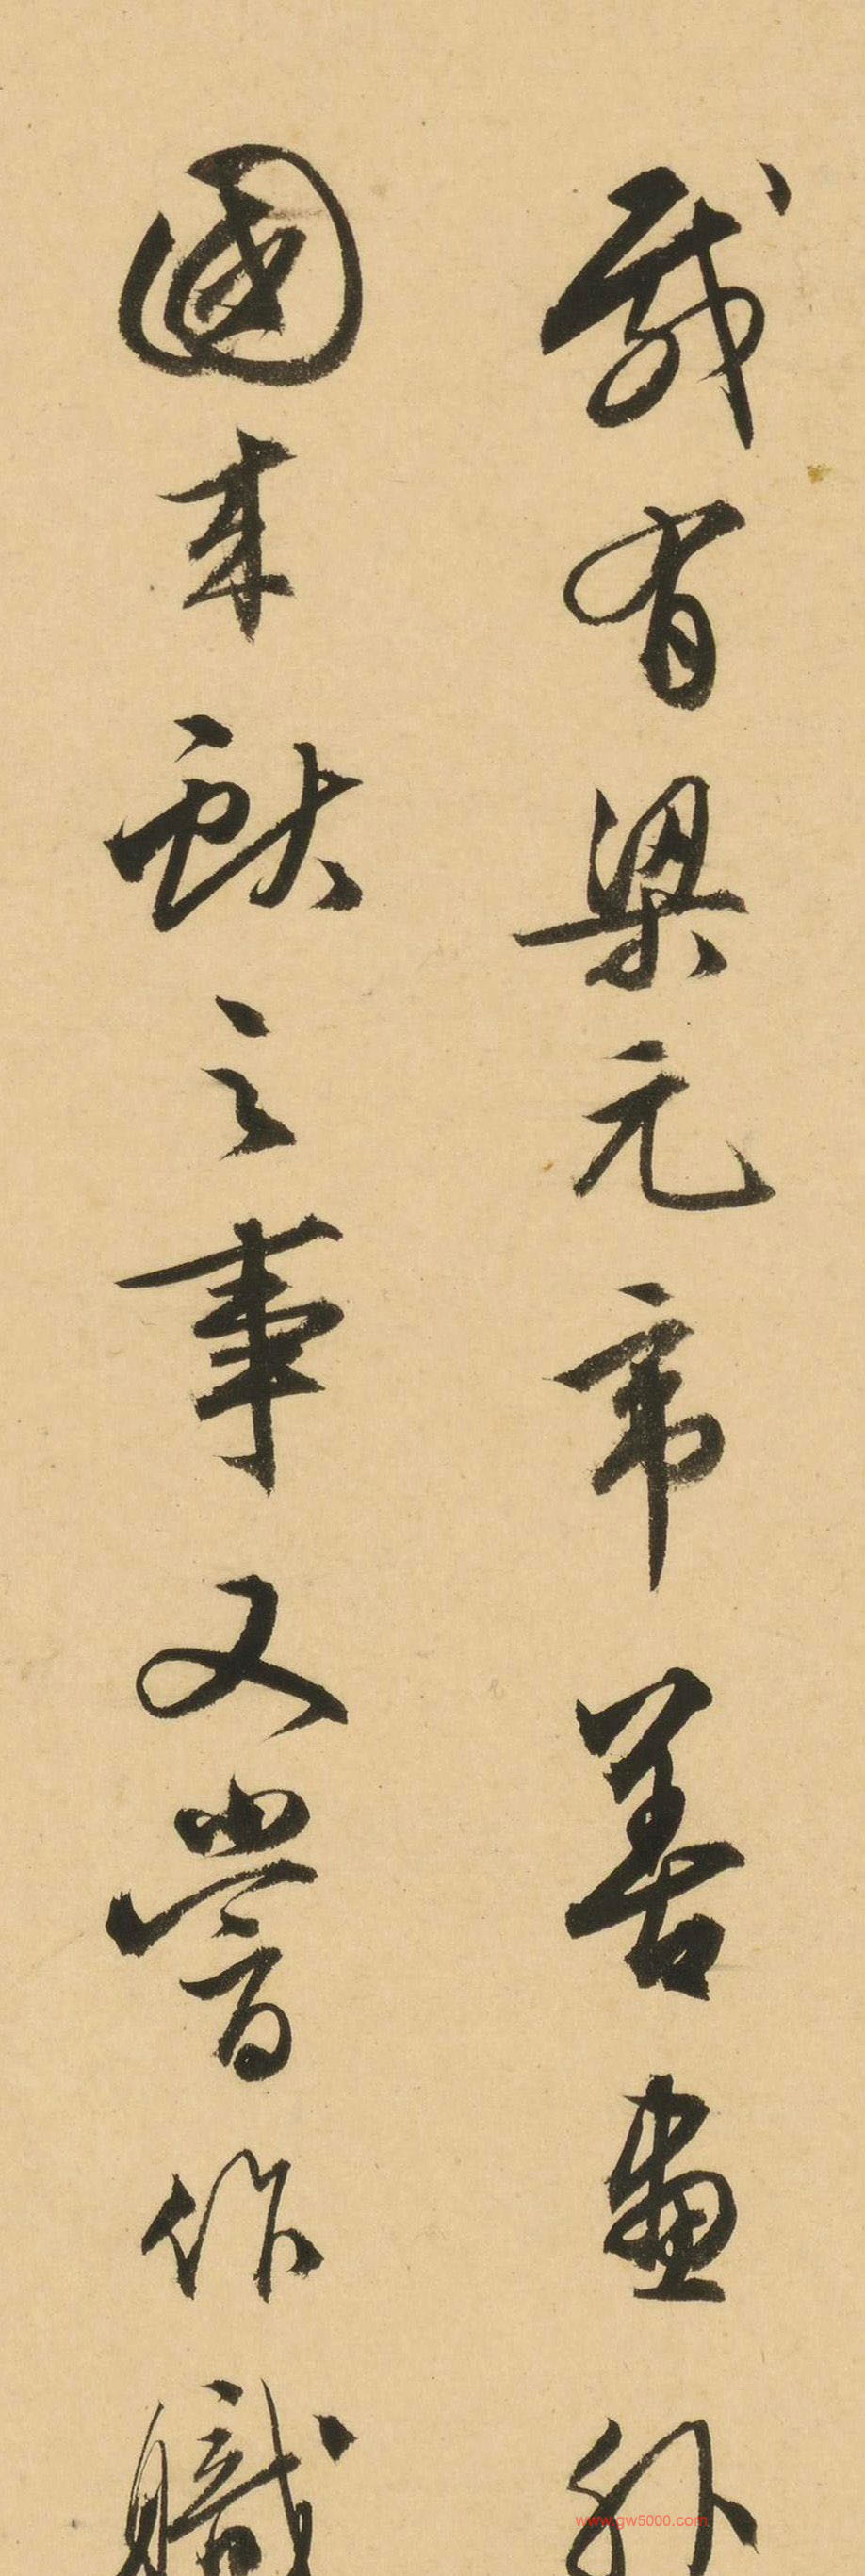 載有梁元帝善畫外
國来獻之事又嘗作職
www.gw5000.com